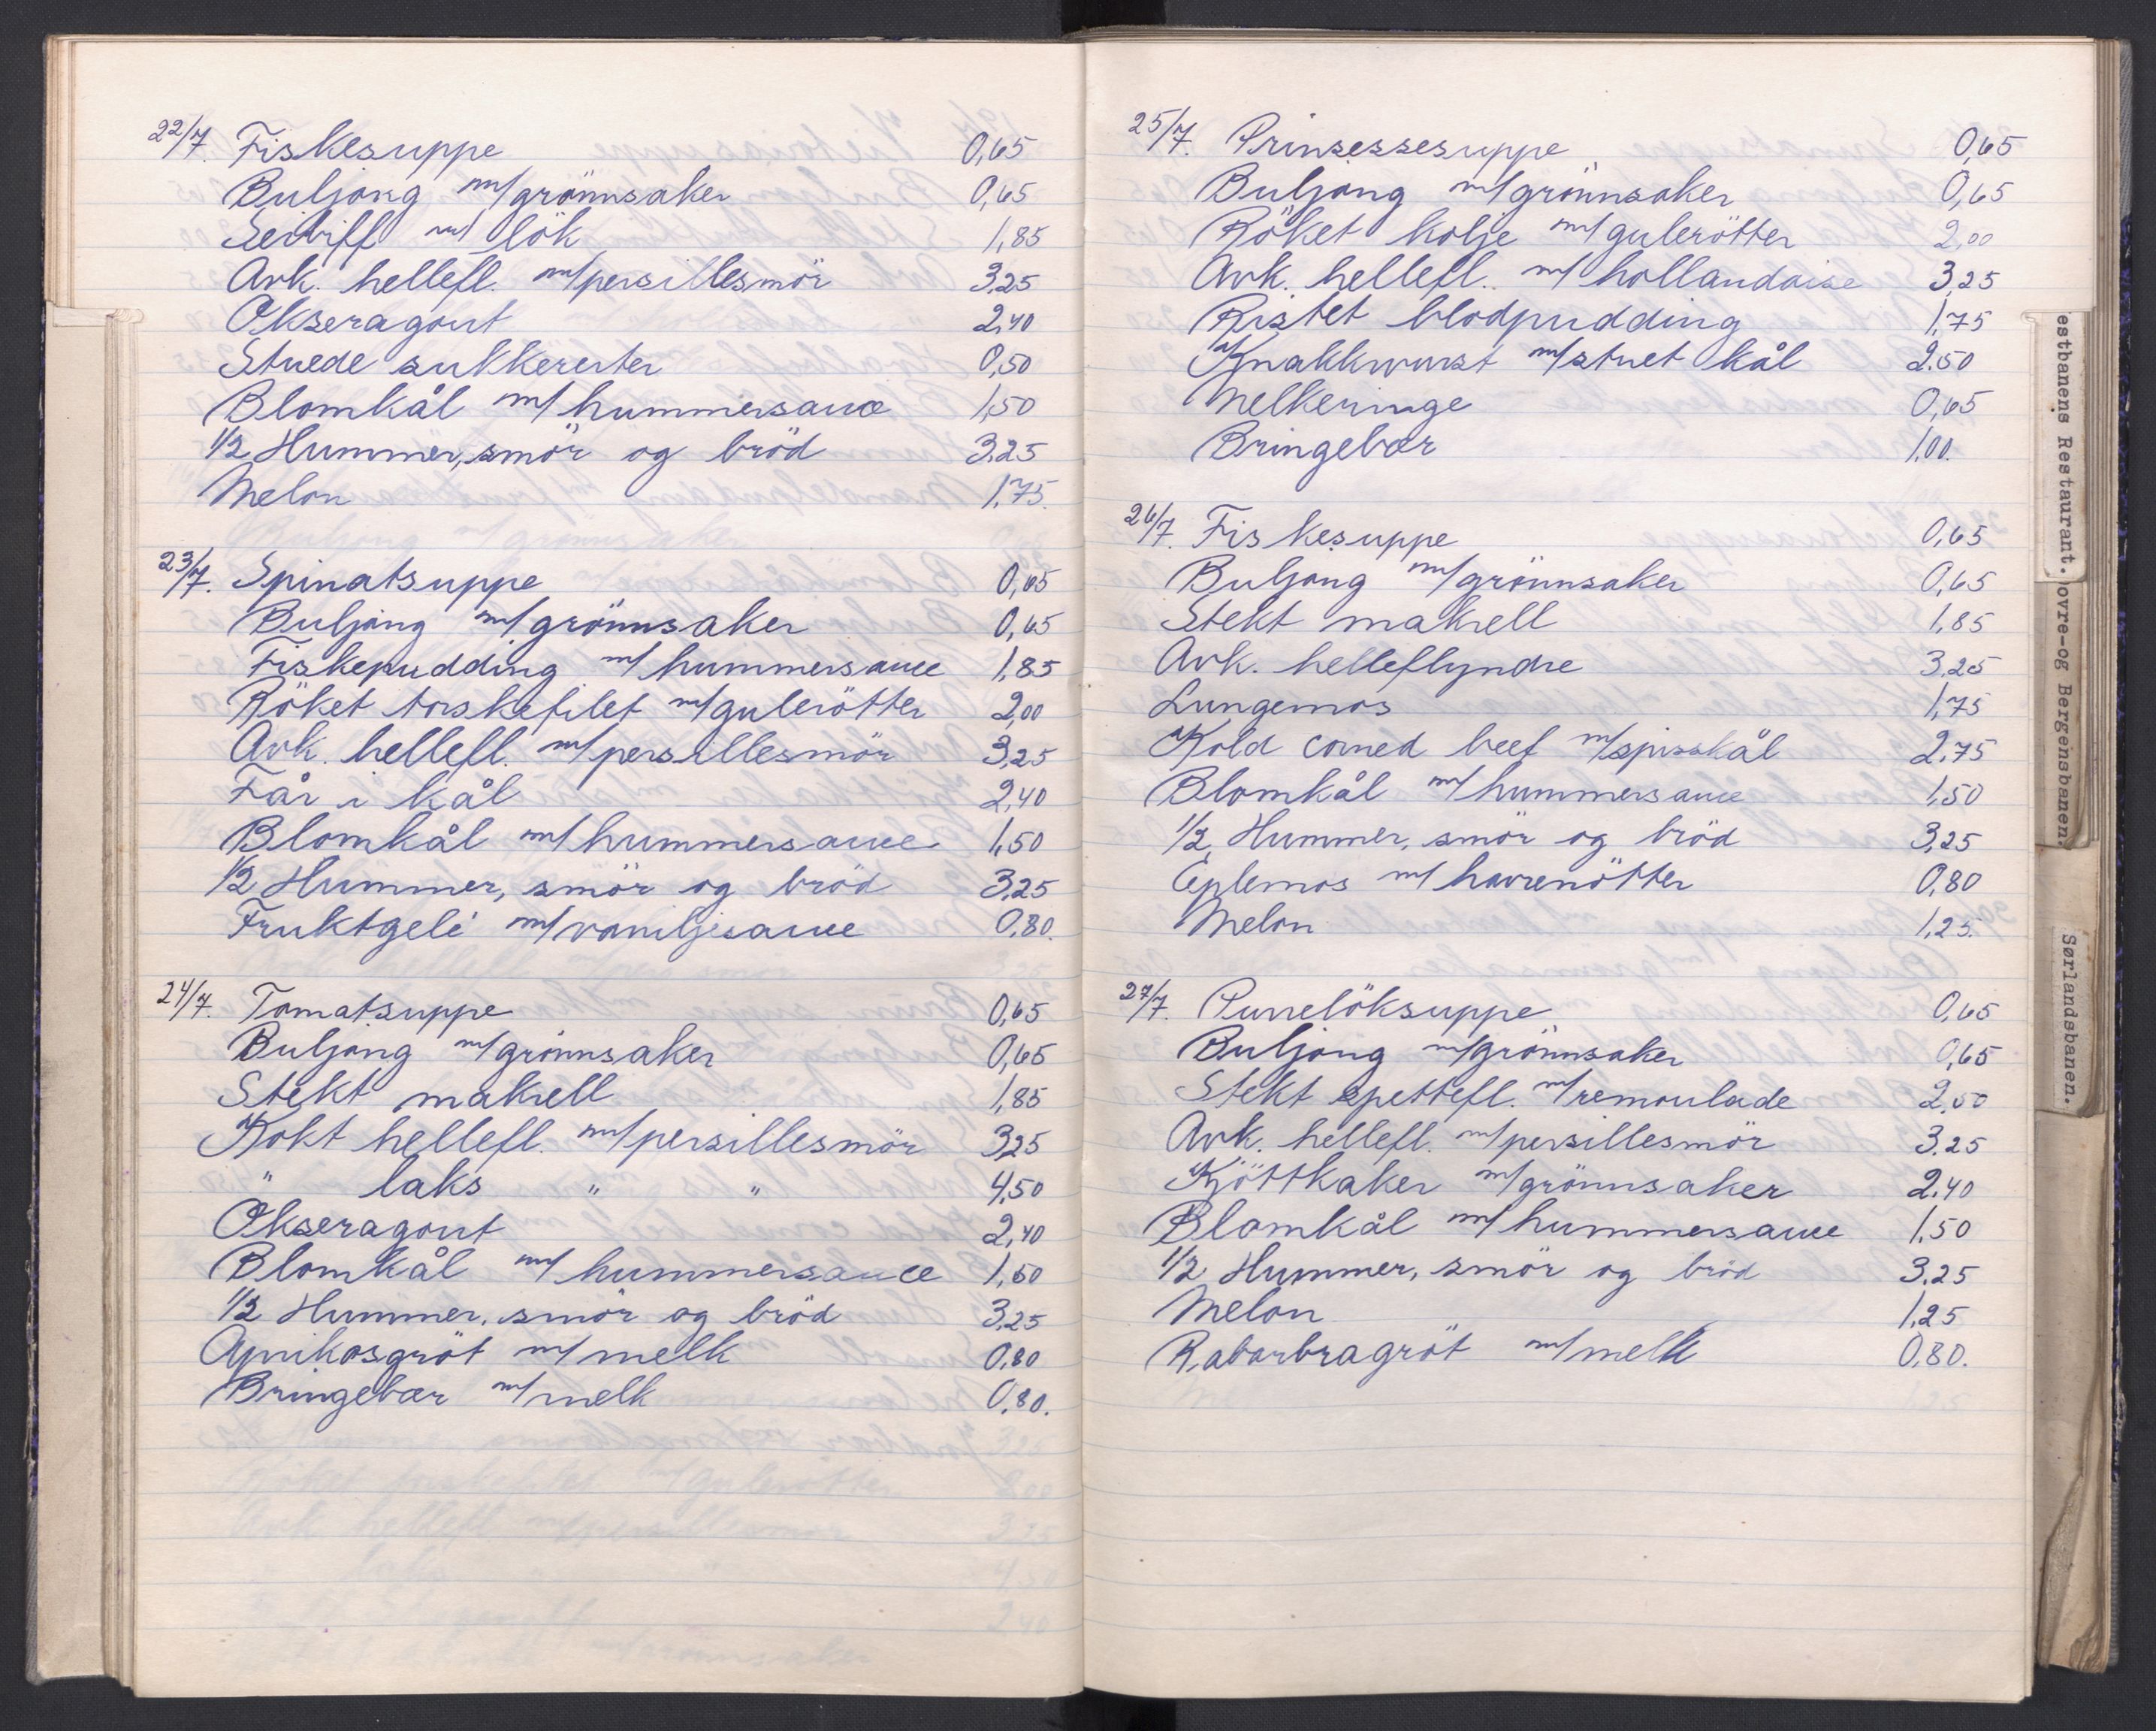 22/7. Fiskesuppe 0,65
Buljong m/grönnsaker 0,65
Seibiff m/ lök 1,85
Avk. hellefl. m/persillesmör 3,25
Okseragout 2,40
Stuede sukkererter 0,50
Blomkål m/ hummersauce 1,50
1/2 Hummer, smör og bröd 3,25
Melon 1,75.
23/7. Spinatsuppe 0,65
Buljong m/grönnsaker 0,65
Fiskepudding m/ hummersauce 1,85
Röket torskefilet m/gulerötter 2,00
Avk. hellefl. m/persillesmör 3,25
Får i kål 2,40
Blomkål m/hummersauce 1,50
1/2 Hummer, smör og bröd 3,25
Fruktgelé m/vaniljesauce 0,80.
24/7. Tomatsuppe 0,65
Buljong m/grönnsaker 0,65
Stekt makrell 1,85
Kokt hellefl. m/persillesmör 3,25
" laks " " 4,50
Okseragout 2,40
Blomkål m/ hummersauce 1,50
1/2 Hummer, smör og bröd 3,25
Aprikosgröt m/ melk 0,80
Bringebær m/melk 0,80.
25/7. Prinsessesuppe 0,65
Buljong m/grönnsaker 0,65
Röket kolje m/gulerötter 2,00
Avk. hellefl. m/ hollandaise 3,25
Ristet blodpudding 1,75
Knakkwurst m/stuet kål 2.50
Melkeringe 0,65
Bringebær 1,00.
26/7. Fiskesuppe 0,65
Buljong m/grönnsaker 0,65
Stekt makrell 1,85
Avk. helleflyndre 3,25
Lungemos 1,75
Kold corned beef m/spisskål 2,75
Blomkål m/hummersauce 1,50
1/2 Hummer, smör og bröd 3,25
Eplemos m/ havrenötter 0,80
Melon 1,25.
27/7. Purrelöksuppe 0,65
Buljong m/grönnsaker 0,65
Stekt spettefl. m/remoulade 2,50
Avk. hellefl. m/persillesmör 3.25
Kjöttkaker m/grönnsaker 2.40
Blomkål m/hummersauce 1,50
1/2 Hummer, smör og bröd 3.25
Melon 1,25
Rabarbragröt m/melk 0,80.
estbanens Restaurant.
ovre-og Bergensbanen.
Sørlandsbanen.